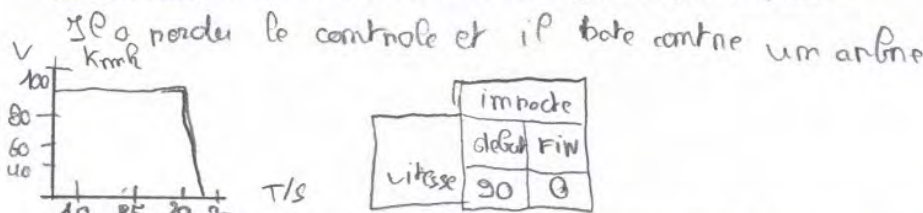 Il a perdu le controle et il bate contre um arbre
V
Kmh
100
80
60
40
T/s
impacte
debut FIN
vitesse 90 0